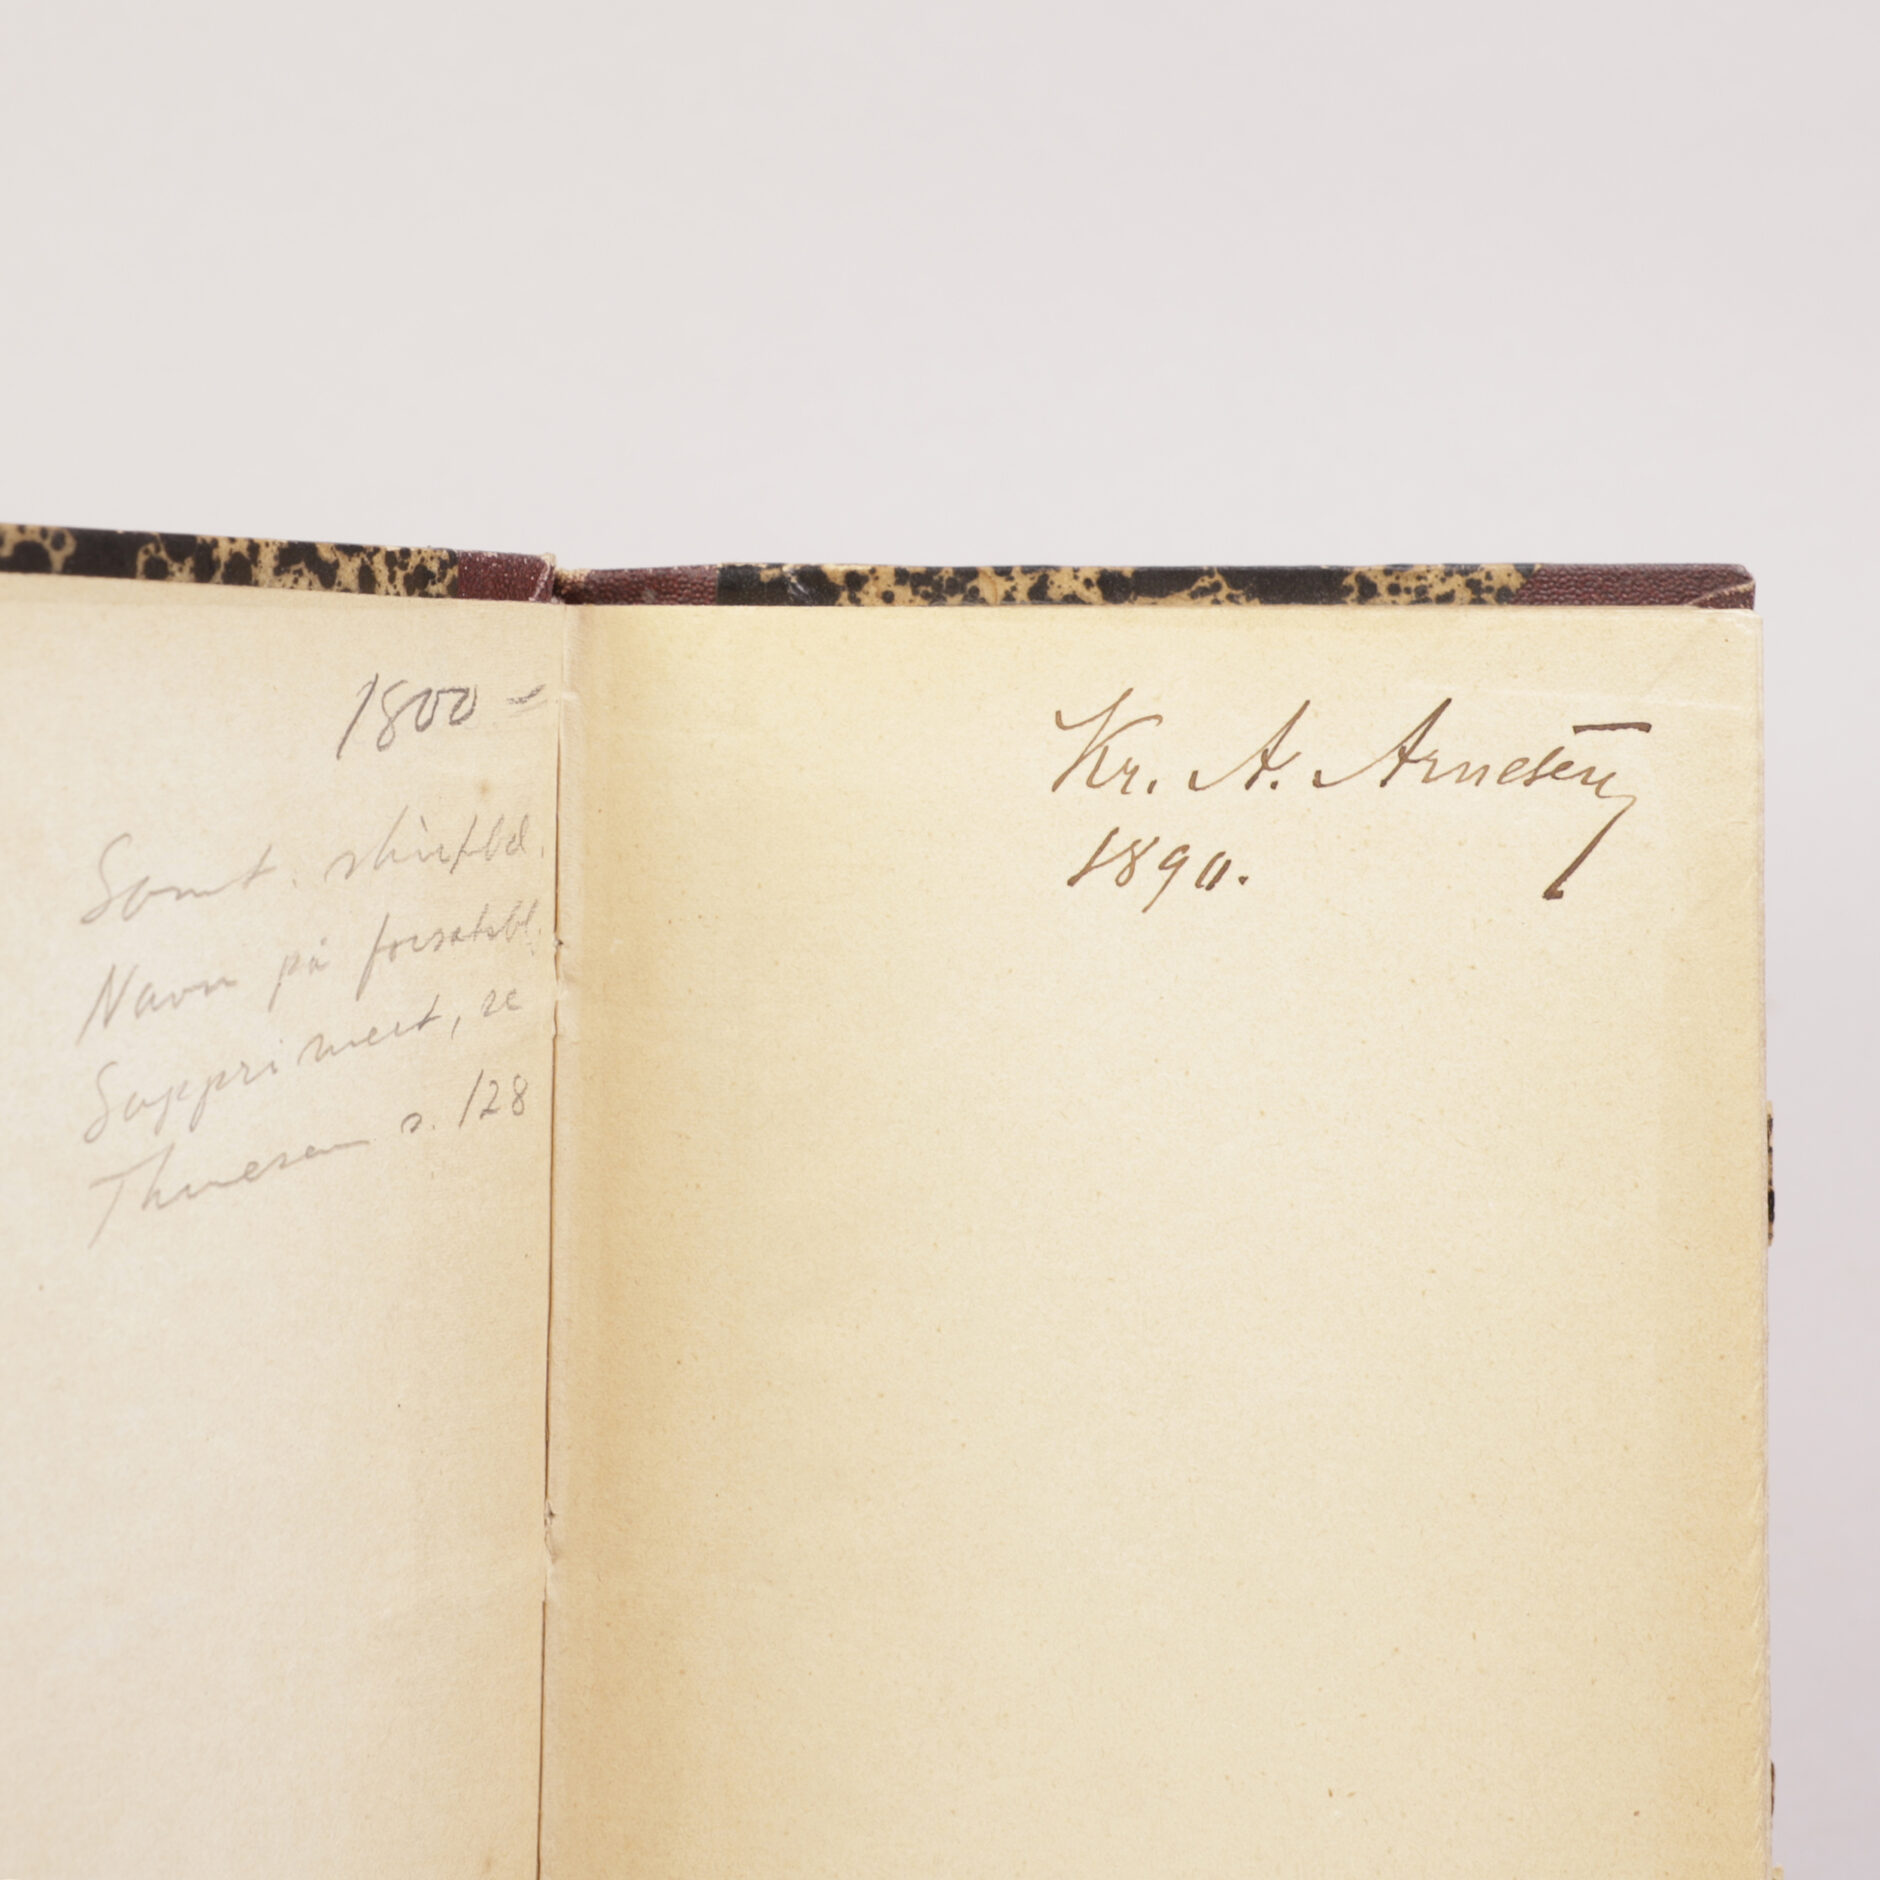 1800 -
Samt. skinnbd.
Navn på forsatsbl.
Supprimert, se
Thuesen s. 128
Kr. A. Arnesen
1890.